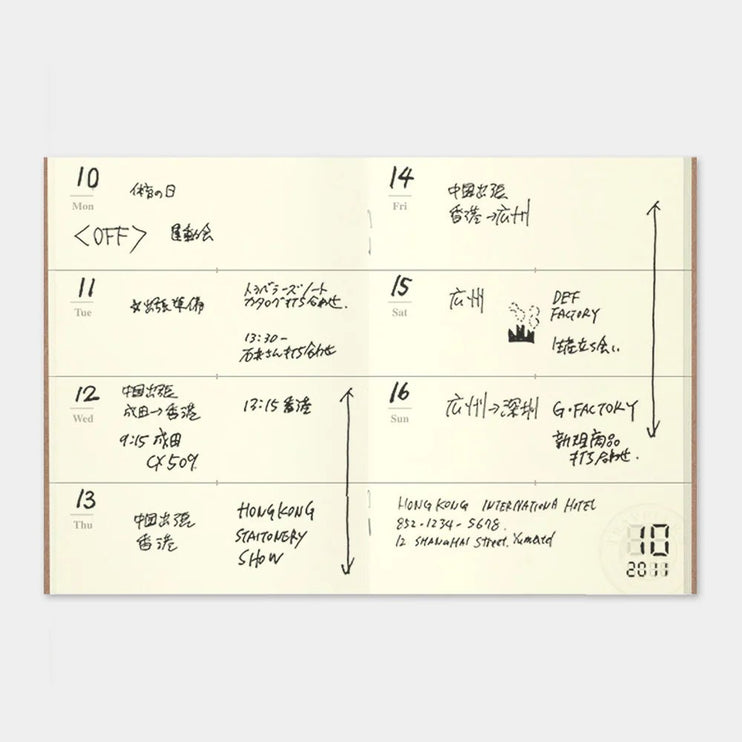 10
Mon
体育の日
<OFF> 運動会
11
Tue
出張準備
トラベラーズノート
カタログ打ち合わせ.
13:30-
石井さん打ち合わせ
12
Wed
中国出張
成田→香港
9:15 成田
CX509.
13:15 香港
13
Thu
中国出張
香港
HONGKONG
STAITONERY
SHOW
14
Fri
中国出張
香港→広州
15
Sat
広州
DEF
FACTORY
生産立ち会い
16
Sun
広州→深圳
G・FACTORY
新規商品
打ち合わせ.
HONG KONG INTERNATIONA HOTEL
852-1234-5678.
12 SHANGHAI Street.
10
2011